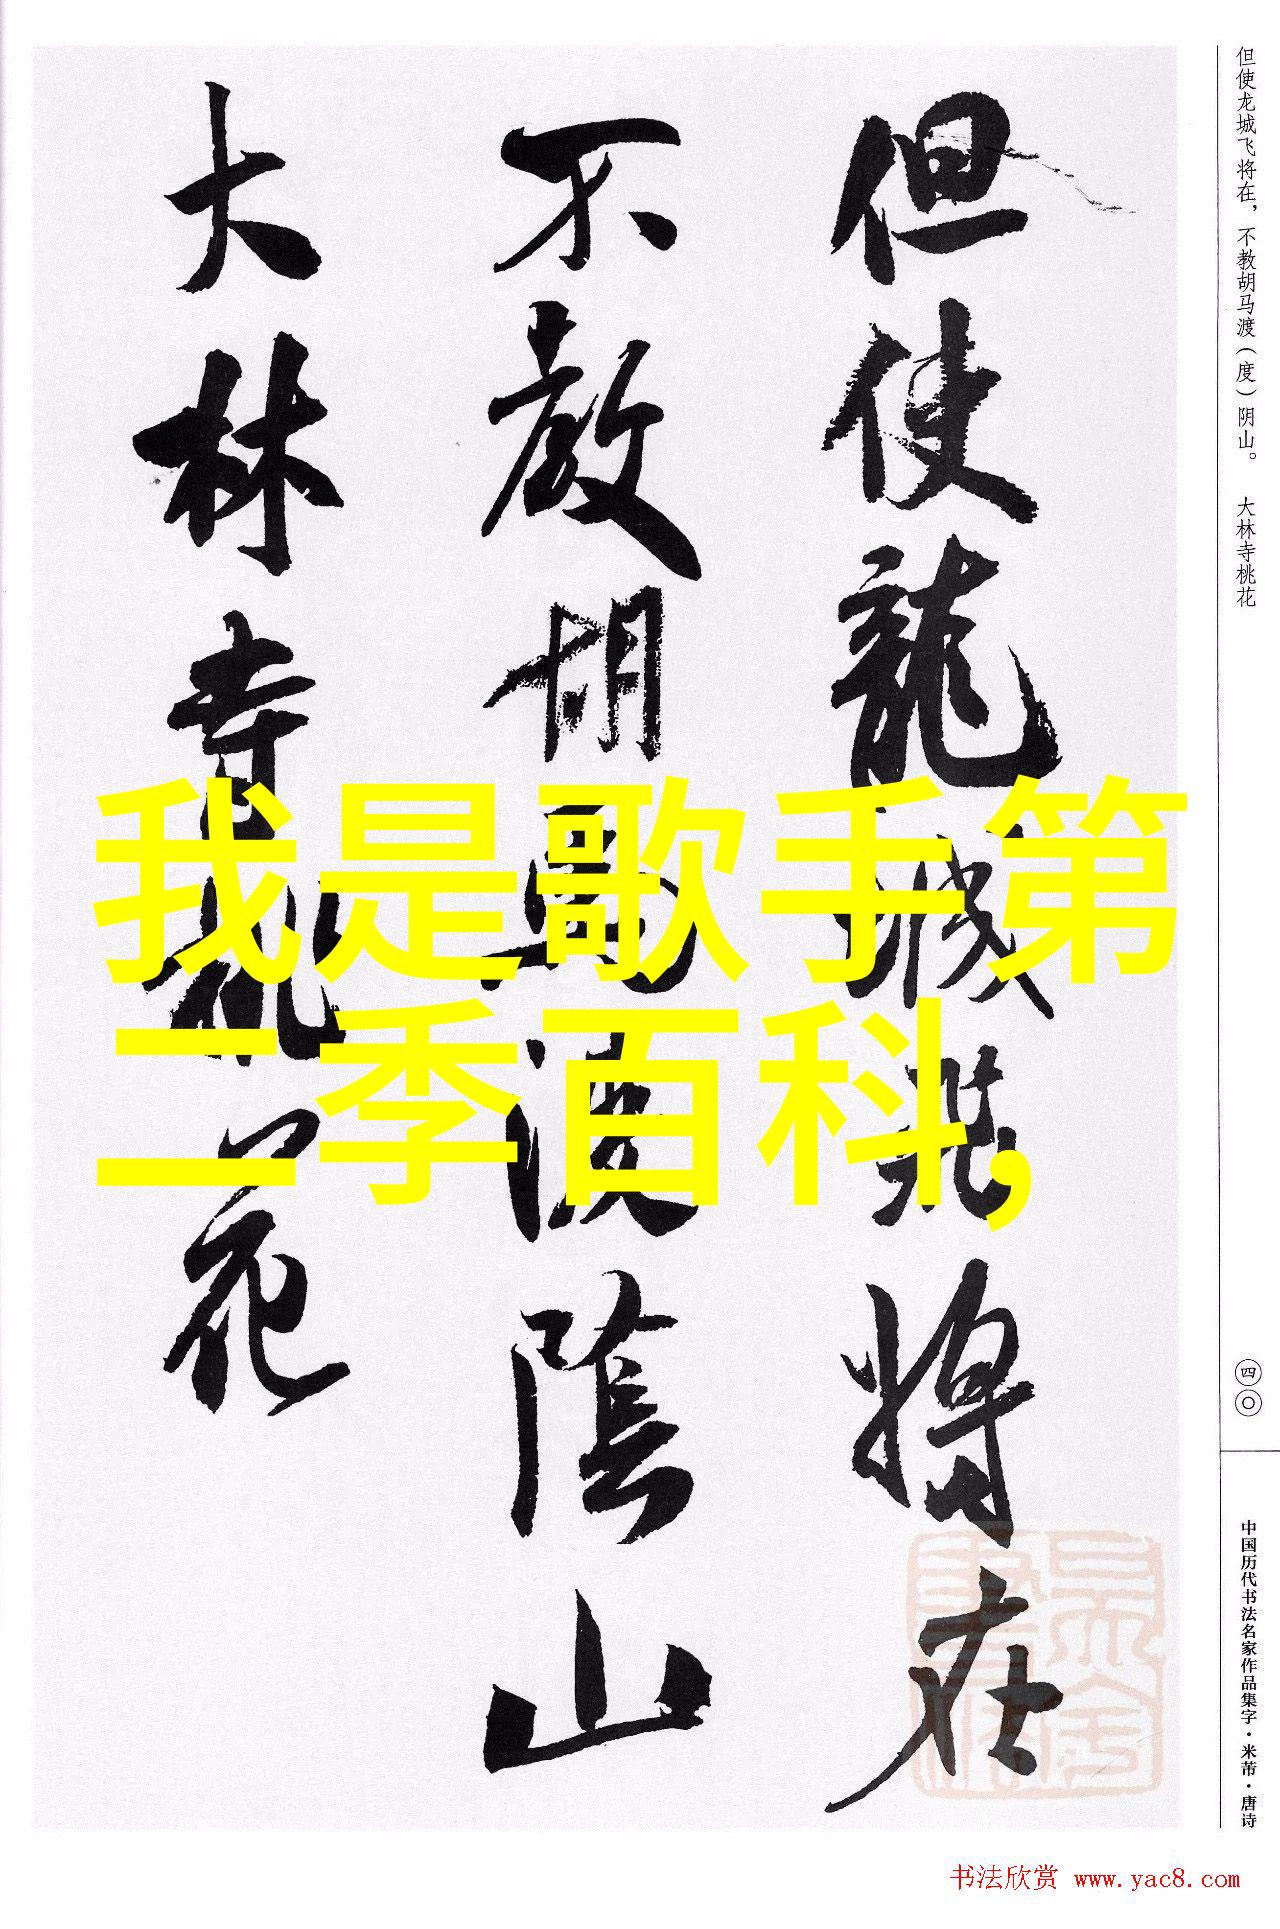 但使龍城飛將在
不教胡馬渡陰山
大林寺桃花
但使龙城飞将在，不教胡马渡（度）阴山。 大林寺桃花
四〇
中国历代书法名家作品集字·米芾·唐诗
我是歌手第
二季百科,
书法欣赏 www.yac8.com